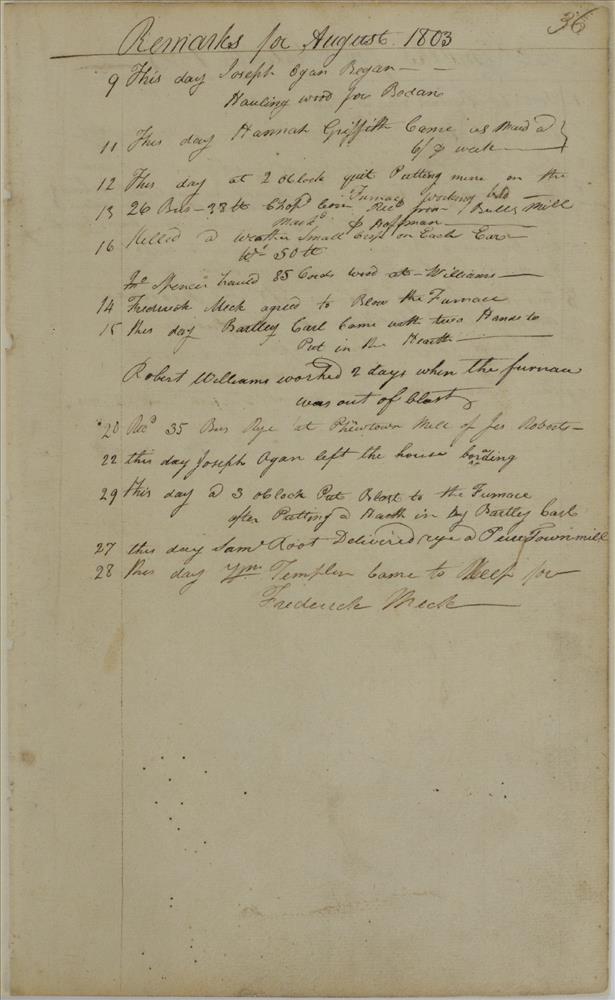 36
Remarks for August 1803
9 This day Joseph Egan Began
Hauling wood for Bodan
11 This day Hannah Griffith Came as Maid a
6/ ⅌ week
12 This day at 2 oClock quit Putting mine on the
Furnace working bad
13 26 Bus - 38 lb Chopd Corn Recd from Bulls Mill
⅌ Boffman
16 Killed a weather Small Crop on Each Ear
Wt 50 lb
Jno Spencer hauld 85 Cords wood at Williams
14 Frederick Meck agreed to Blow the Furnace
15 this day Bartley Carl Came with two Hands to
Put in the Hearth
Robert Williams worked 2 days when the furnace
was out of blast
20 Recd 35 Bus Rye at Mill of Jes Roberts
22 this day Joseph Ogan left the house bording
29 this day a 3 oClock Put Blast to the Furnace
after Putting a Harth in by Bartley Carl
27 this day Saml Root Delivered rye a Town mill
28 this day Wm Templin Came to Keep for
Frederick Meck